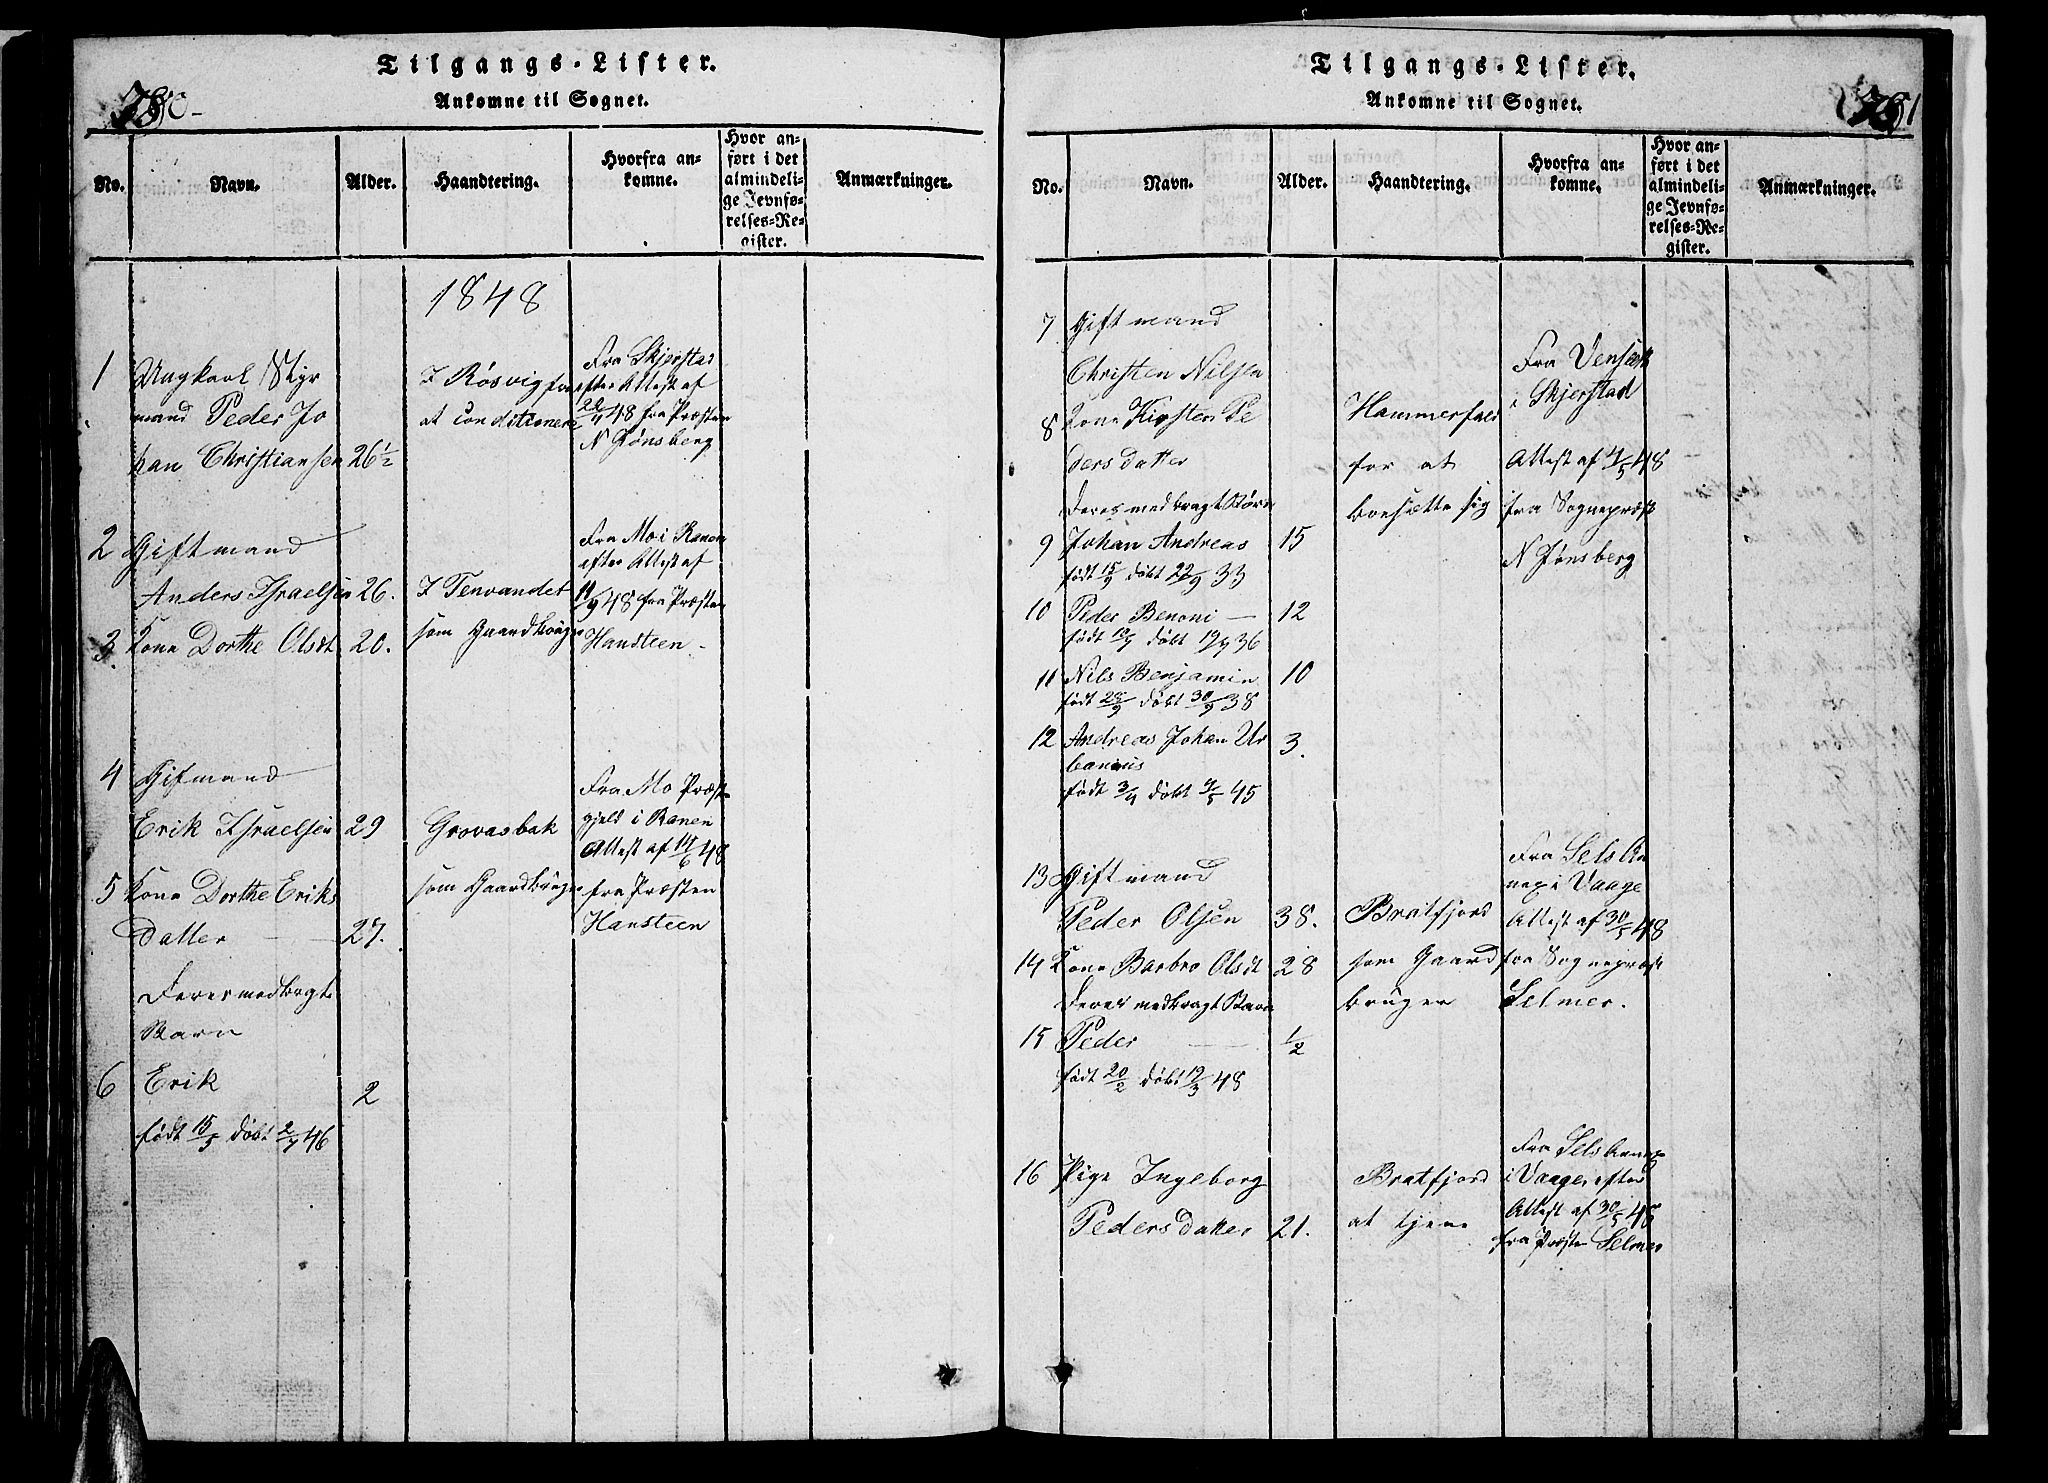 Tilgangs-Lister.
Ankomne til Sognet.
No.
Navn.
Alder.
Haandtering.
Hvorfra an-
komne.
Hvor an-
ført i det
almindeli-
ge Jevnfø-
relses-Re-
gister.
Anmærkninger.
1848
1
Ungkarl Styr
mand Peder Jo
han Christiansen
26½
I Røsvig for
at conditionere
Fra Skjerstad
efter Attest af
48 fra Præsten
N Jønsberg
2
Gift mand
Anders Israelsen
26.
I Tenvandet
som Gaardbruger
Fra Mo i Ranen
efter Attest af
48 fra Præsten
Hansteen
3.
Kone Dorthe Olsdt
20.
4
Giftmand
Erik Israelsen
29
Grovasbak
som Gaardbruger
Fra Mo Præste
gjeld i Ranen
Attest af 14/6 48
fra Præsten
Hansteen
5
Kone Dorthe Eriks
datter
27.
Deres medbragte
Barn
6
Erik
2
født 15/5 døbt 2/7 46
Tilgangs-Lister.
Ankomne til Sognet.
No.
Navn.
Alder.
Haandtering.
Hvorfra an-
komne.
Hvor an-
ført i det
almindeli-
ge Jevnfø-
relses-Re-
gister.
Anmærkninger.
7
Gift mand
Christen Nilsen
Hammerfald
for at
bosætte sig
Fra Venset
i Skjerstad
Attest af 4/5 48
fra Sognepræst
N Jønsberg
8
Kone Kirsten Pe
dersdatter
Deres medbragt Børn
9
Johan Andreas
15
født 15/9 døbt 22/9 33
10
Peder Benoni
12
født døbt 36
11
Nils Benjamin
10
født 28/9 døbt 30/9 38
12
Andreas Johan Ur
banus
3.
født 3/4 døbt 4/5 45
13
Gift mand
Peder Olsen
38.
Bratfjord
som Gaard
bruger
Fra Sels An
nex i Vaage
Attest af 30/5 48
fra Sognepræst
Selmer.
14
Kone Barbro Olsdt
28
Deres medbragt Barn
15
Peder
½
født 20/2 døbt 19/3 48
16
Pige Ingeborg
Pedersdatter
21.
Bratfjord
at tjene
Fra Sels Annex
i Vaage efter
Attest af 30/5 48
fra Præsten Selmer